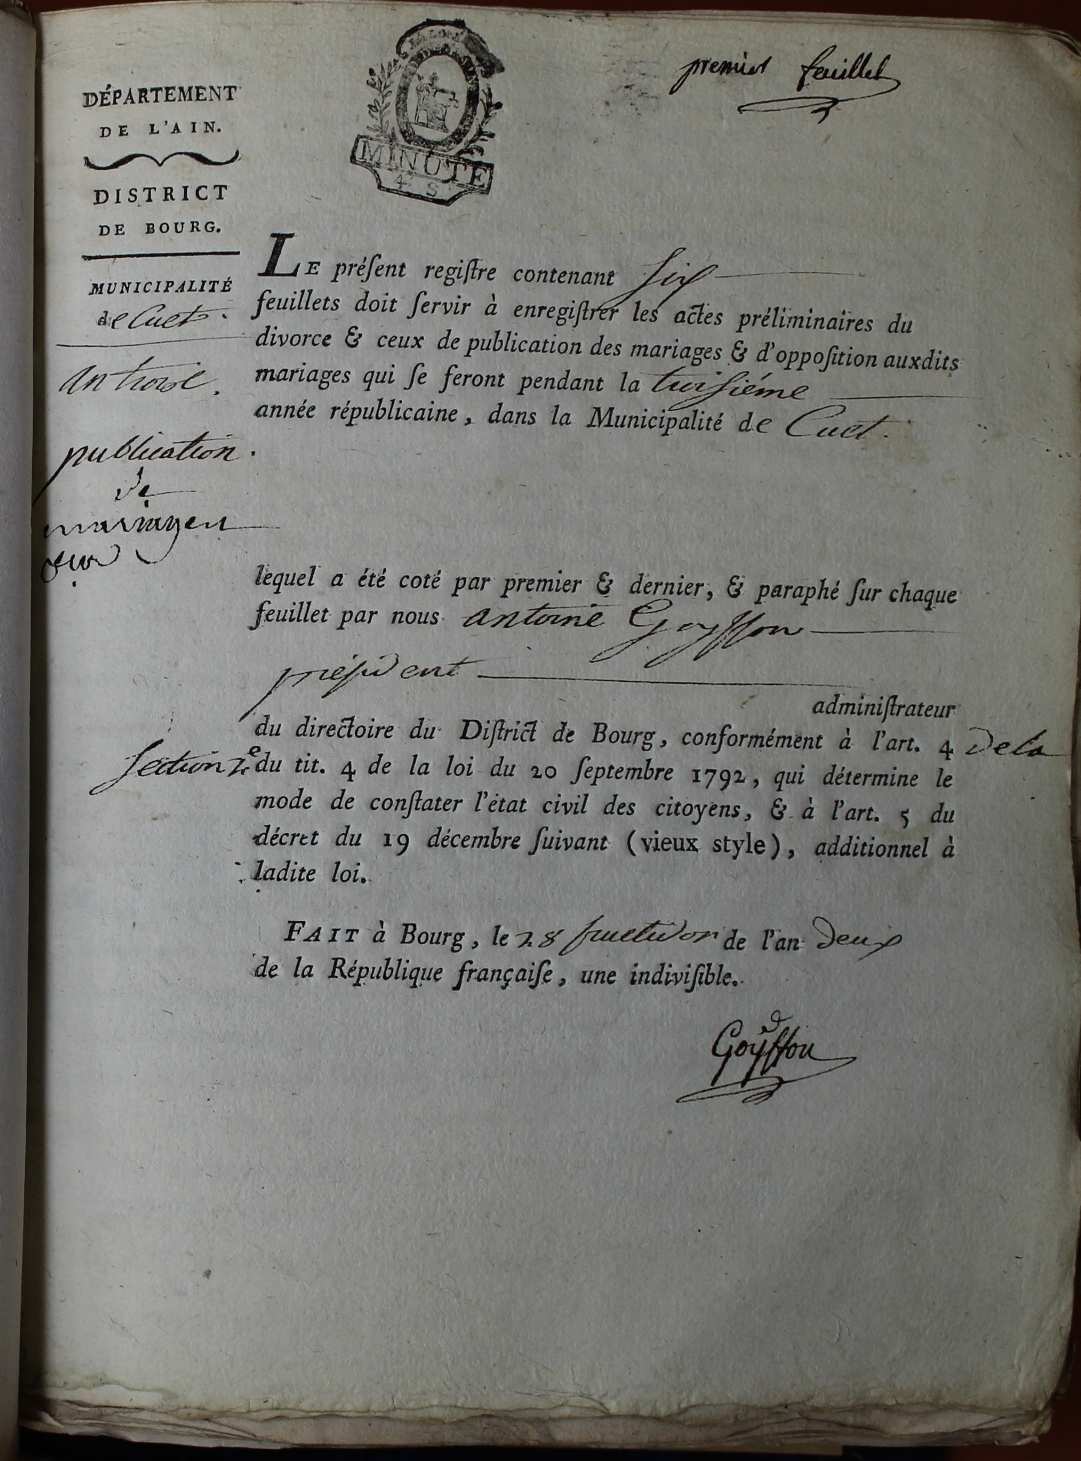 premier feuillet
DÉPARTEMENT
DE L'AIN.
DISTRICT
DE BOURG.
MUNICIPALITÉ
de Cuet.
an trois.
publication
de
mariages
MINUTE
4 S
LE préſent regiſtre contenant Six
feuillets doit ſervir à enregiſtrer les actes préliminaires du
divorce & ceux de publication des mariages & d'oppoſition auxdits
mariages qui ſe feront pendant la troiſiéme
année républicaine, dans la Municipalité de Cuet.
lequel a été coté par premier & dernier, & paraphé ſur chaque
feuillet par nous antoine Goyffon
préſident
adminiſtrateur
du directoire du Diſtrict de Bourg, conformément à l'art. 4 de la
Section 2e du tit. 4 de la loi du 20 ſeptembre 1792, qui détermine le
mode de conſtater l'état civil des citoyens, & à l'art. 5 du
décret du 19 décembre ſuivant (vieux style), additionnel à
ladite loi.
FAIT à Bourg, le 28 fructidor de l'an deux
de la République françaiſe, une indiviſible.
Goyffon